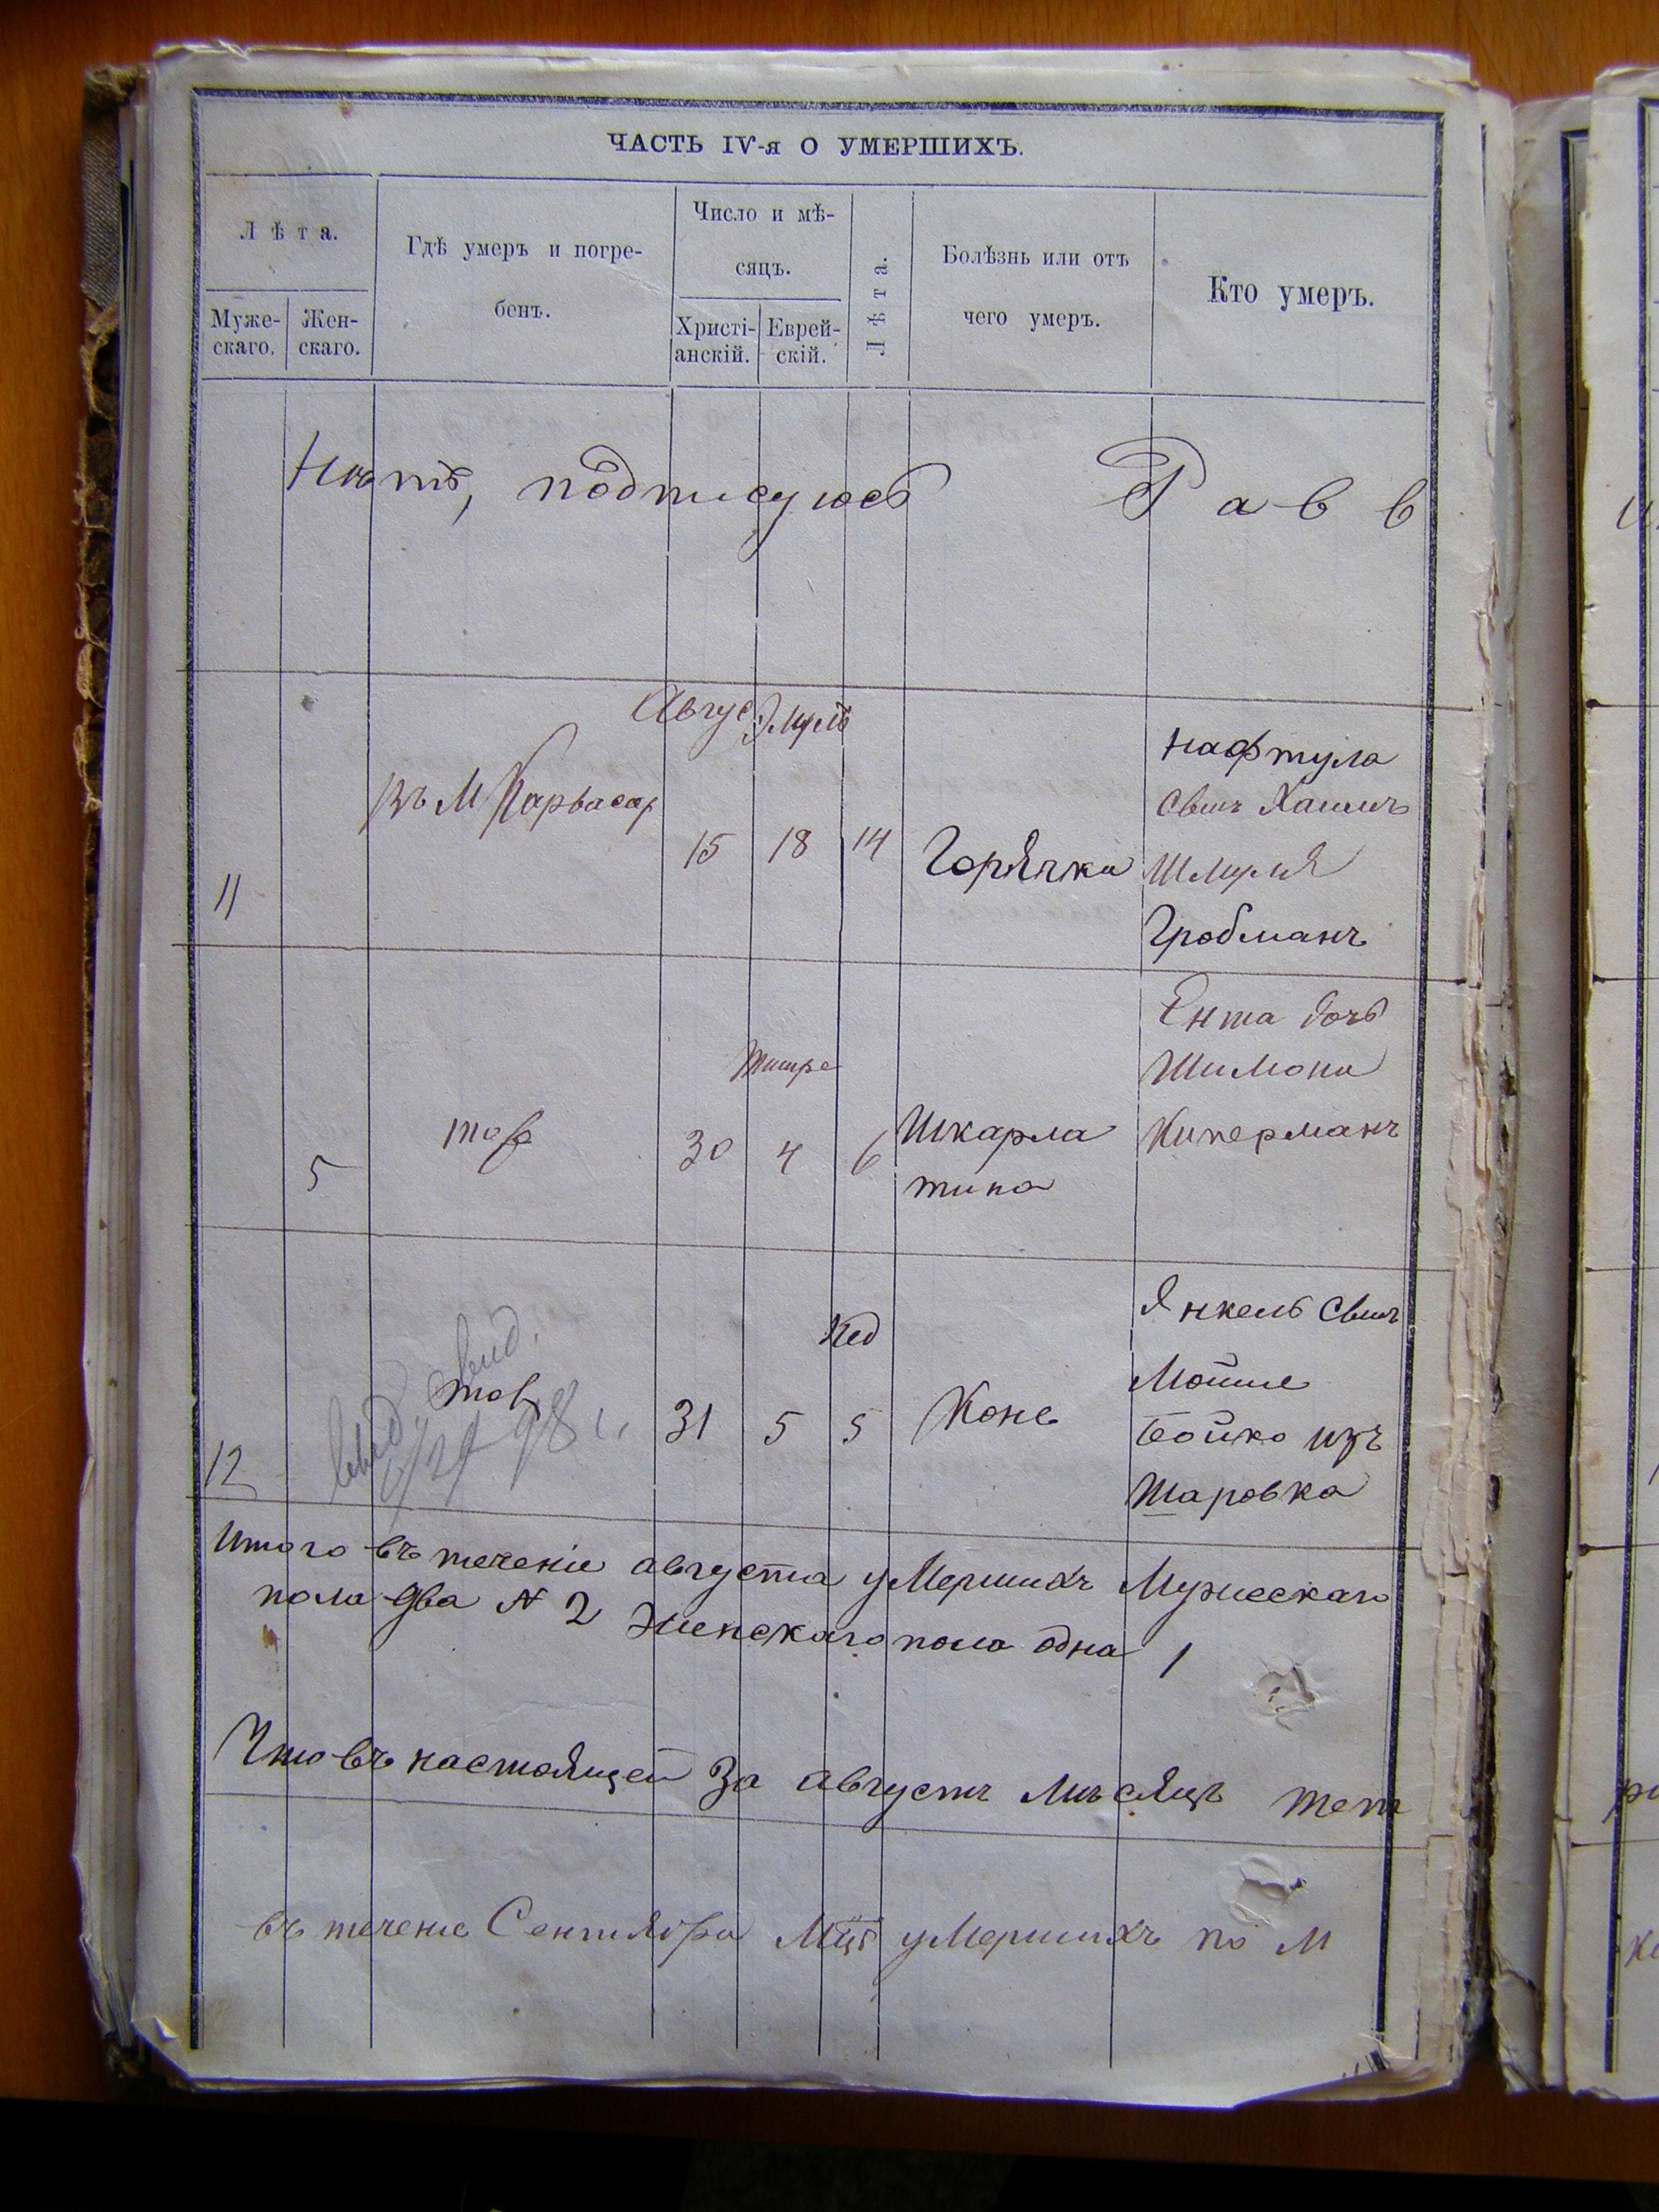 ЧАСТЬ IV-я О УМЕРШИХЪ.
Лѣта.
Муже-
скаго.
Жен-
скаго.
Гдѣ умеръ и погре-
бенъ.
Число и мѣ-
сяцъ.
Христі-
анскій.
Еврей-
скій.
Лѣта.
Болѣзнь или отъ
чего умеръ.
Кто умеръ.
Нѣтъ, подписуюсь Равв
Авгус Элулъ
11 въ М Карвасар 15 18 14 Горячка
Нафтула
свинъ Хаимъ
Шмуля
Гробманъ
Тишре
5 тоже 30 4 6 Шкарла
тина
Ента дочь
Шимона
Киперманъ
12 31 5 5
Янкель свинъ
Мошие
Бойко изъ
Шаровка
Итого въ теченіи августа умершихъ Мужескаго
пола два № 2 Женскаго пола одна 1
Что въ настоящей За августъ мѣсяцъ тет
въ теченіе Сентября Мцъ умершихъ по М